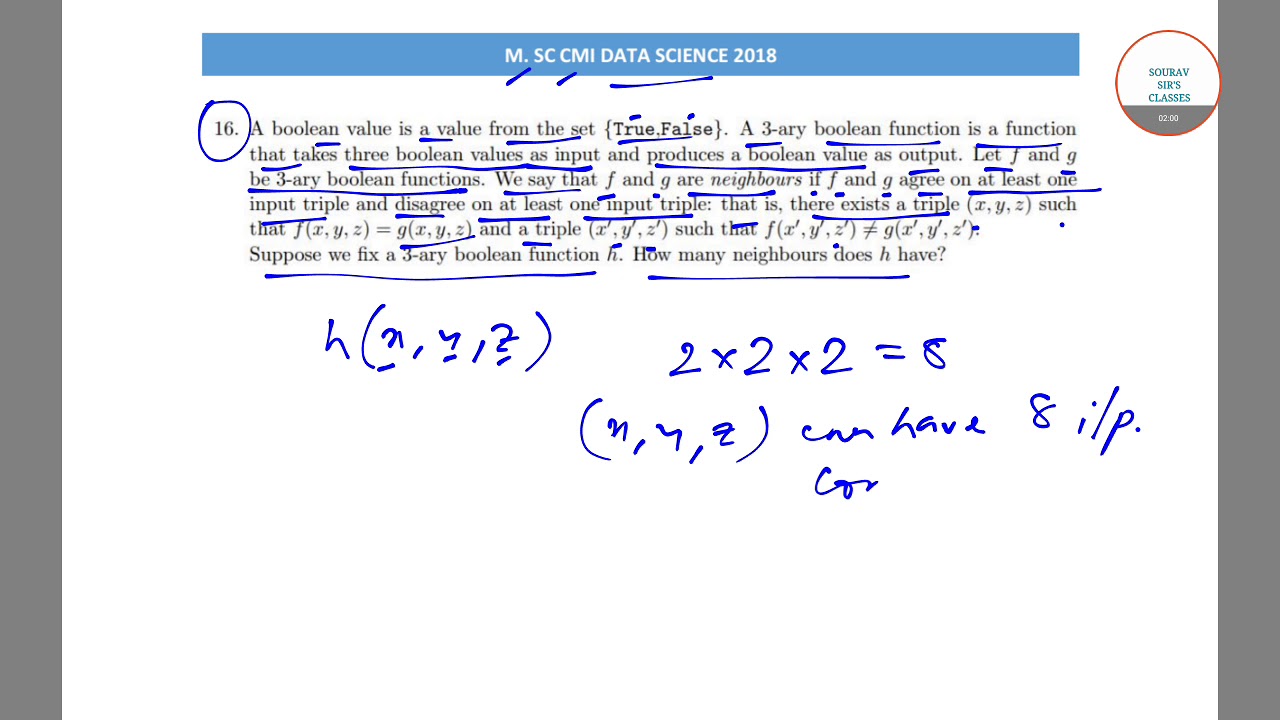 M. SC CMI DATA SCIENCE 2018
SOURAV
SIR'S
CLASSES
02:00
16. A boolean value is a value from the set {True,False}. A 3-ary boolean function is a function
that takes three boolean values as input and produces a boolean value as output. Let f and g
be 3-ary boolean functions. We say that f and g are neighbours if f and g agree on at least one
input triple and disagree on at least one input triple: that is, there exists a triple (x, y, z) such
that f(x, y, z) = g(x, y, z) and a triple (x′, y′, z′) such that f(x′, y′, z′) ≠ g(x′, y′, z′).
Suppose we fix a 3-ary boolean function h. How many neighbours does h have?
h(x, y, z) 2 × 2 × 2 = 8
(x, y, z) can have 8 i/p.
com